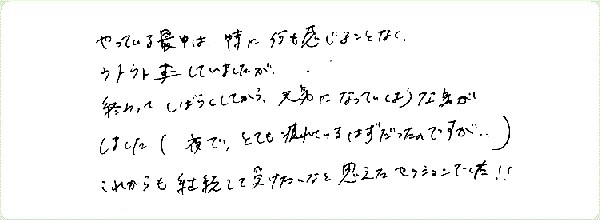 やっている最中は 特に 何も感じることなく、
ウトウト していましたが、
終わって しばらくしてから、元気に なっているような気が
しました ( 夜で、とても 疲れているはずだったのですが‥ )
これからも 継続して 受けたいなと 思えた セッションでした!!